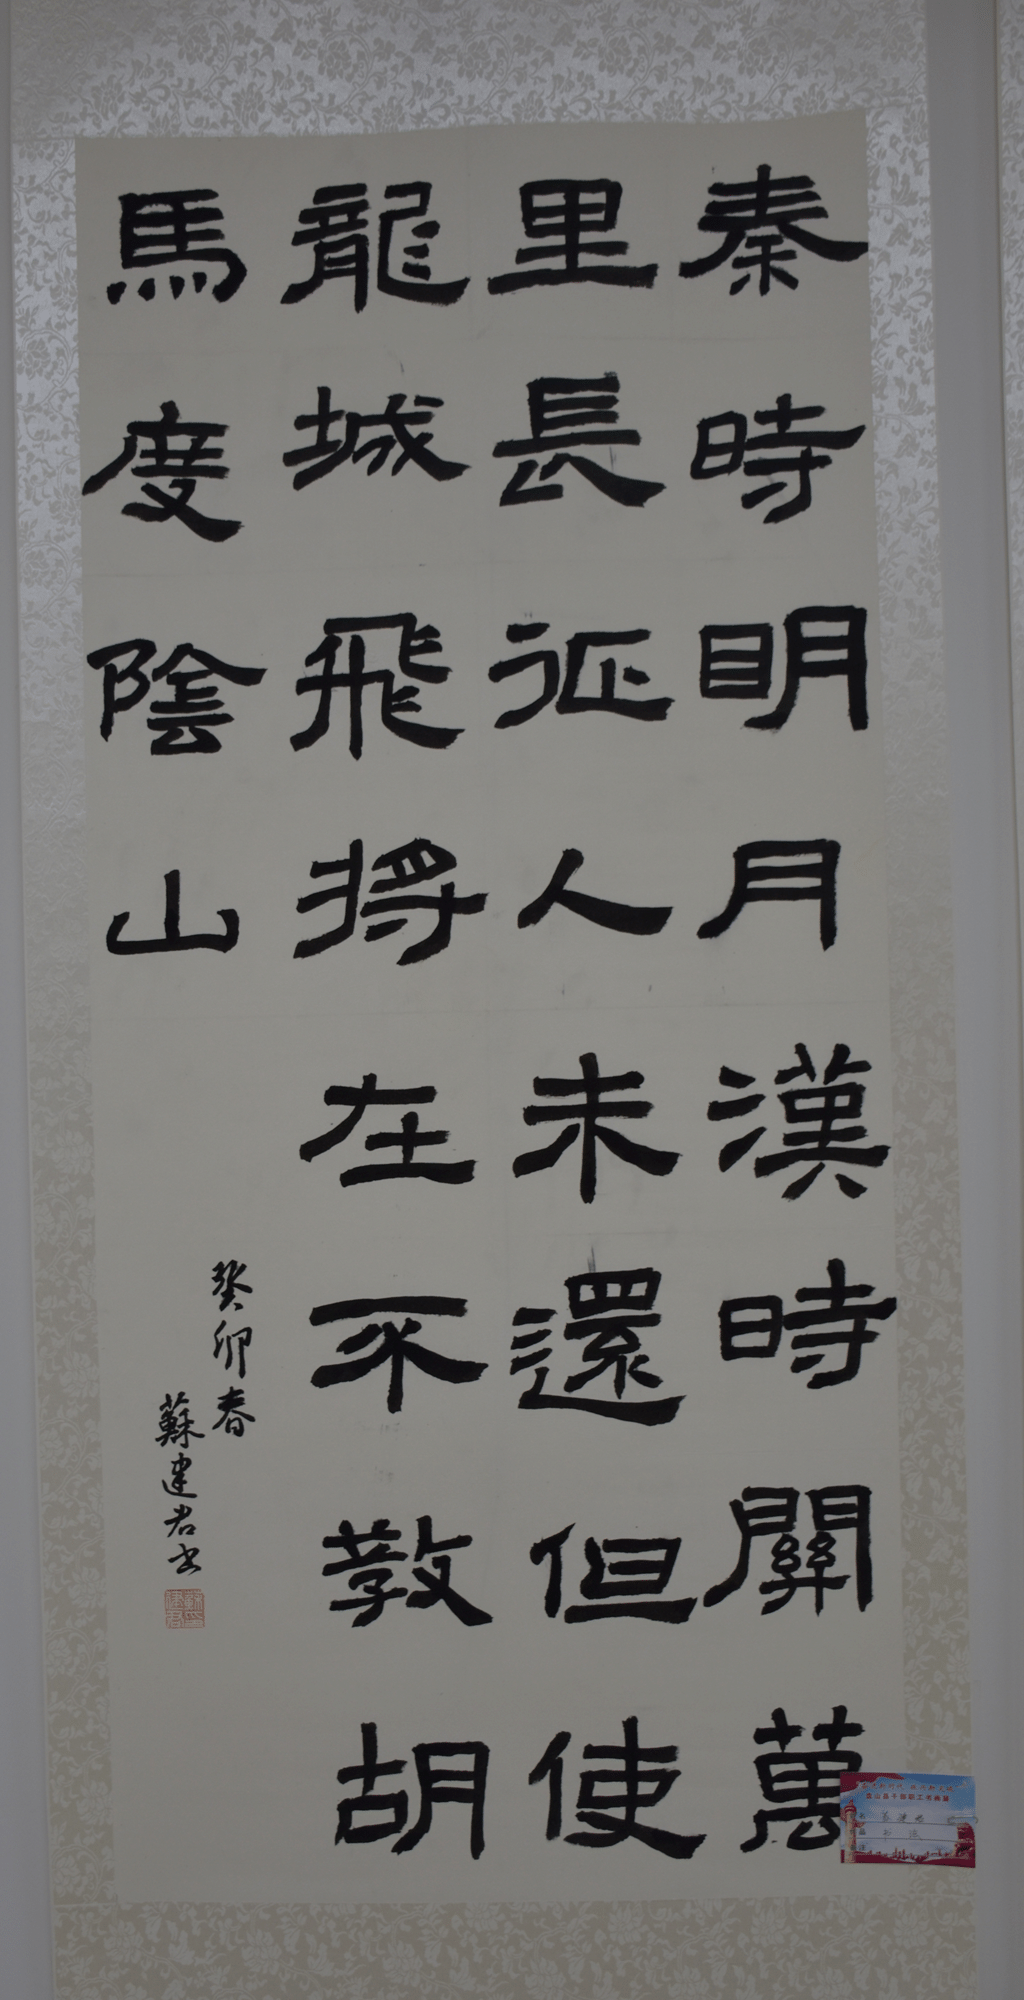 秦時明月漢時關萬
里長征人未還但使
龍城飛將在不敎胡
馬度陰山
癸卯春
蘇建君书